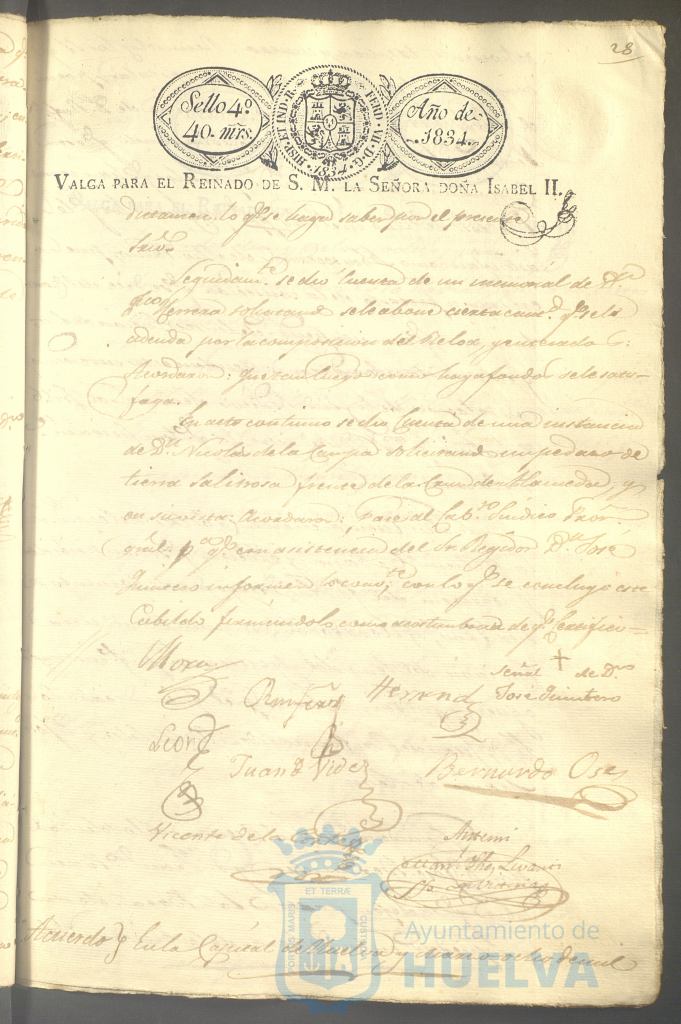 28
Sello 4º
40. mrs.
HISP. ET IND. R. FERD. VII. D. G.
1834
Año de
1834.
VALGA PARA EL REINADO DE S. M. LA SEÑORA DOÑA ISABEL II.
dictamen lo qe. se haga saber por el presente
Srio.
Seguidamte. se dio cuenta de un memorial de Dn.
Fco. Herrera solicitando se le abone cierta cantd. qe. se le
adeuda por la composicion del Relox, y enterado s:
Acordaron: que tan luego como haya fondos se le satis-
faga.
En acto continuo se dio cuenta de una instancia
de Dn. Nicolas de la Campa solicitando un pedazo de
tierra salitrosa frente de la Cruz del
en su vista: Acordaron: pase al Cabo. Sindico Pror.
gral. pa. qe. con asistencia del Sr. Regidor Dn. José
Quintero informen lo convte. con lo qe. se concluyó este
Cabildo firmandolo como acostumbran de qe. certifico=
Mora
Hernnd
señal + de Dn.
José Quintero
León
Juan de Videz
Bernardo Oses
Vicente de la
Antemi
Acuerdo En la Capital de Huelva y Marzo ocho de mil
PORTUS MARIS ET TERRÆ CUSTODIA
Ayuntamiento de
HUELVA